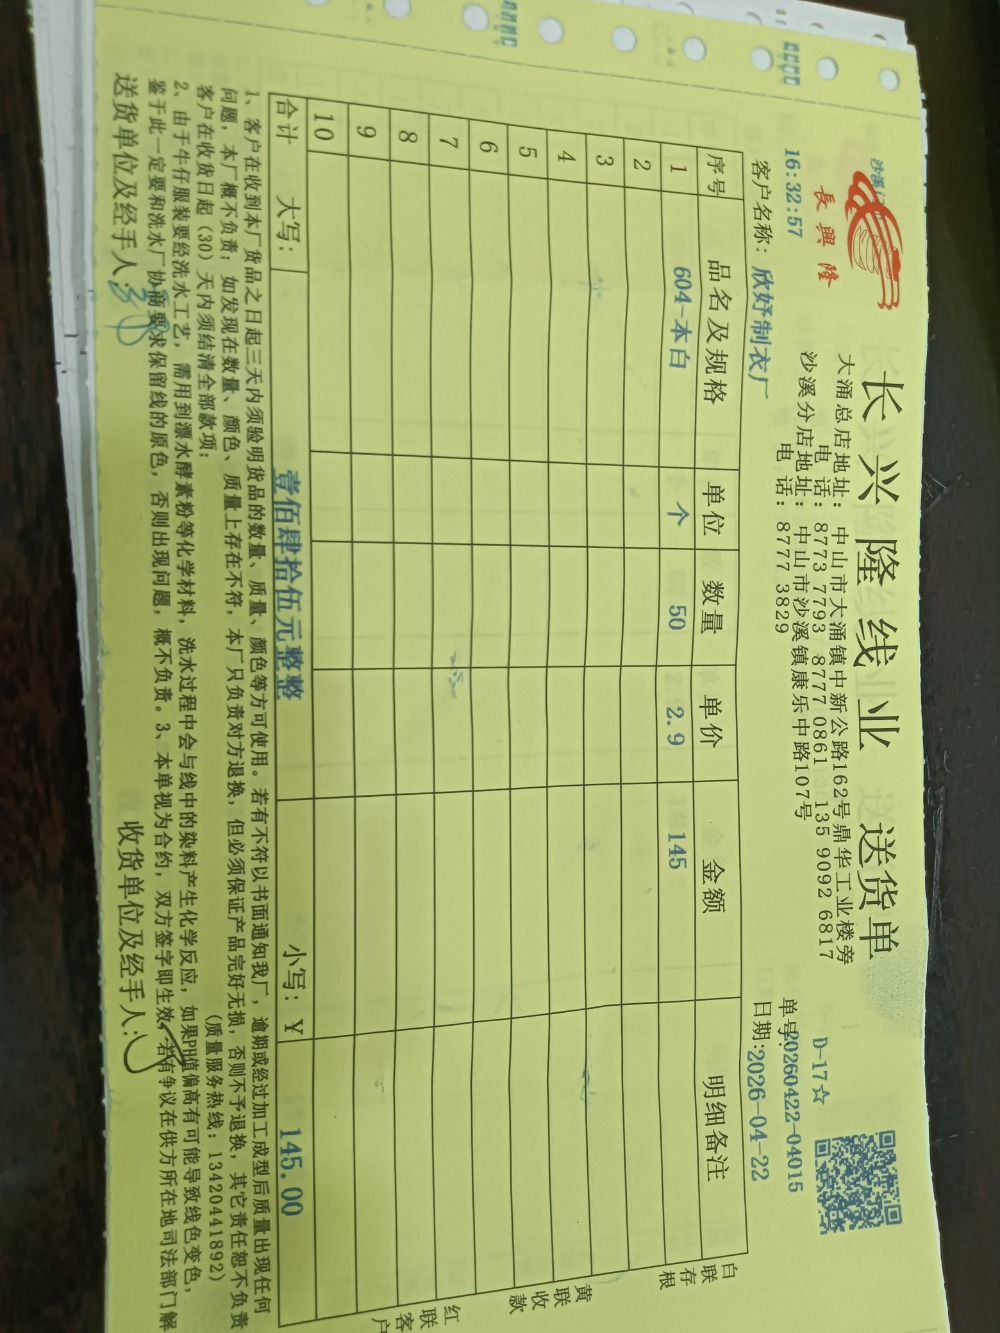 長興隆
长兴隆线业 送货单
大涌总店地址: 中山市大涌镇中新公路162号鼎华工业楼旁
电 话: 8773 7793 8777 0861 135 9092 6817
沙溪分店地址: 中山市沙溪镇康乐中路107号
电 话: 8777 3829
D-17☆
16:32:57
单号:20260422-04015
客户名称: 欣妤制衣厂
日期:2026-04-22
序号 品名及规格 单位 数量 单价 金额 明细备注
1 604-本白 个 50 2.9 145
2
3
4
5
6
7
8
9
10
合计 大写: 壹佰肆拾伍元整整 小写: ¥ 145.00
白联存根
黄联收款
红联客户
1、客户在收到本厂货品之日起三天内须验明货品的数量、质量、颜色等方可使用。若有不符以书面通知我厂,逾期或经过加工成型后质量出现任何
问题,本厂概不负责;如发现在数量、颜色、质量上存在不符,本厂只负责对方退换,但必须保证产品完好无损,否则不予退换,其它责任恕不负责
客户在收货日起(30)天内须结清全部款项; (质量服务热线:13420441892)
2、由于牛仔服装要经洗水工艺,需用到漂水酵素粉等化学材料,洗水过程中会与线中的染料产生化学反应,如果PH值偏高有可能导致线色变色,
鉴于此一定要和洗水厂协商要求保留线的原色,否则出现问题,概不负责。3、本单视为合约,双方签字即生效,若有争议在供方所在地司法部门解
送货单位及经手人: 收货单位及经手人: